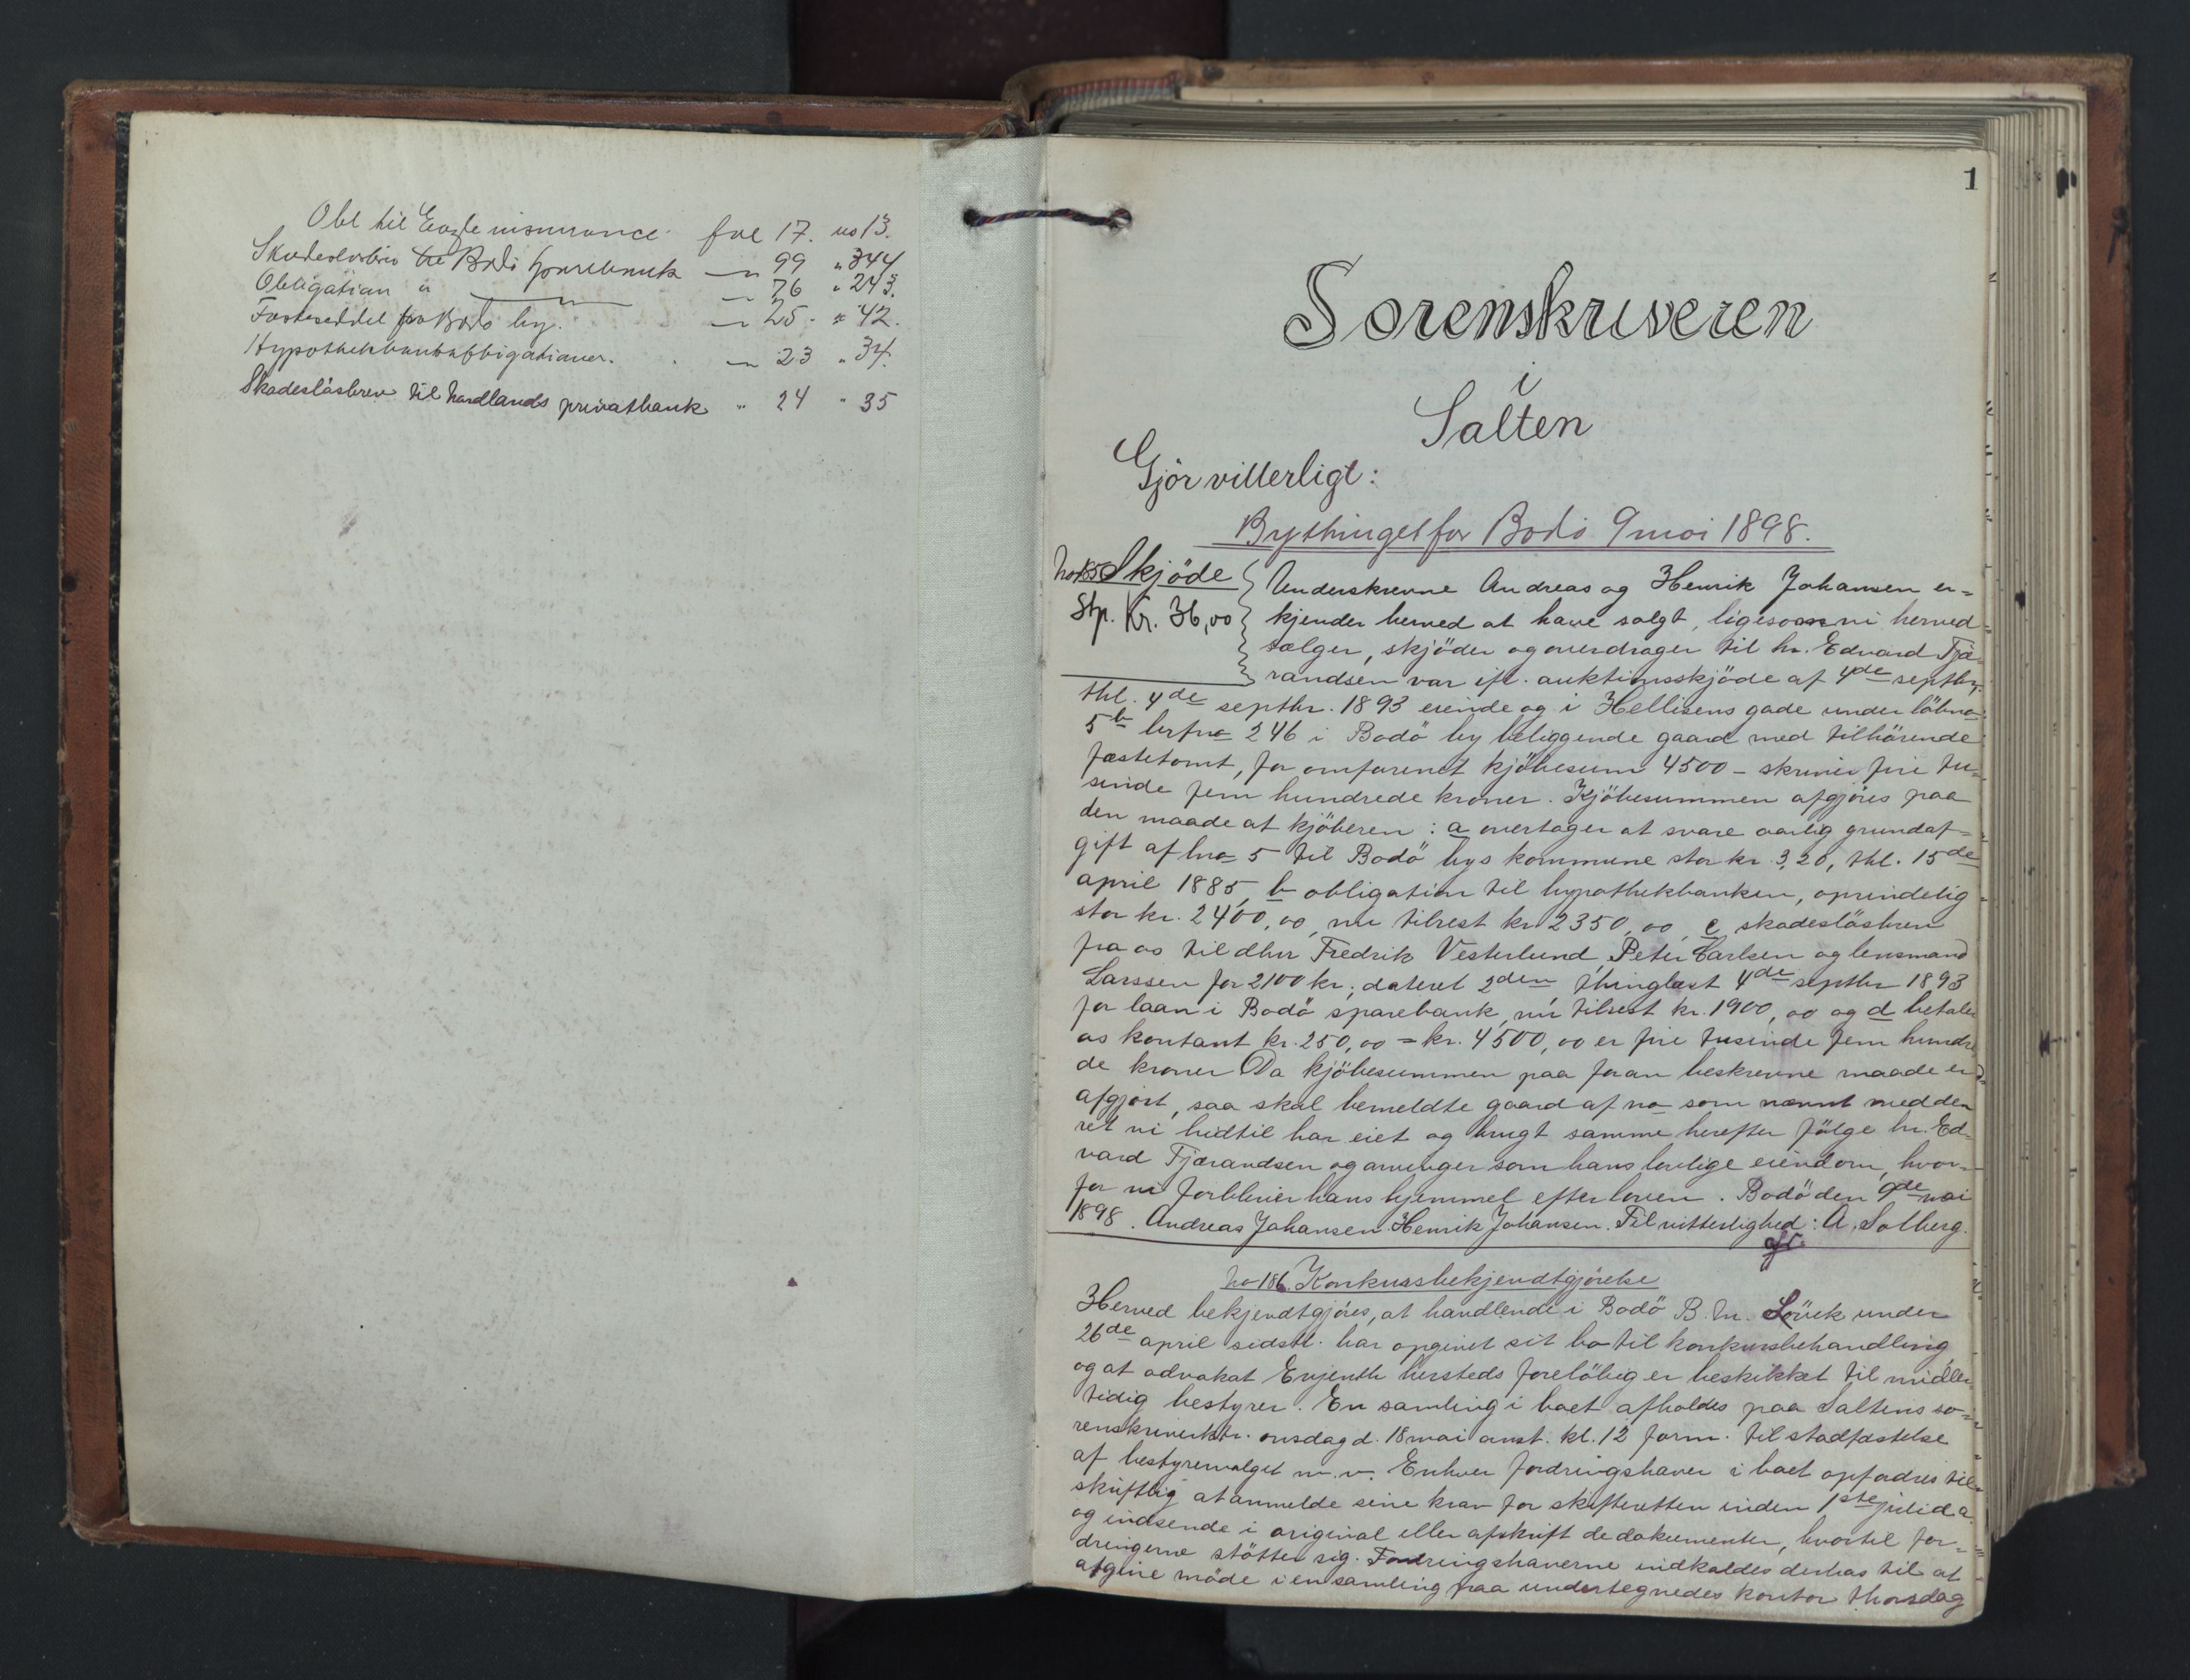 Obl til insurance fol 17. no 13.
Skadesløsbrev til Bodö sparebank — " 99 " 344
Obligation " — " — — " 76 " 243.
Festeseddel fra Bodö by. — " 25. " 42.
Hypothekbankobligationer. — " 23 " 34.
Skadeslösbrev til Nordlands privatbank " 24 " 35
1
Sorenskriveren
i
Salten
Gjör vitterligt:
Bythinget for Bodö 9 mai 1898.
No 185 Skjöde
Stp. Kr. 36,00
Underskrevne Andreas og Henrik Johansen er-
kjender herved at have solgt, ligesom vi herved
sælger, skjöder og overdrager til hr. Edvard Fjæ-
randsen vor ifl. auktionsskjöde af 4de septbr.
thl. 4de septbr. 1893 eiende og i Hellisens gade under löbno
5b brfno 246 i Bodö by beliggende gaard med tilhörende
fæstetomt, for omforenet kjöbesum 4500 – skriver fire tu-
sinde fem hundrede kroner. Kjöbesummen afgjöres paa
den maade at kjöberen: a overtager at svare aarlig grundaf-
gift af lno 5 til Bodö bys kommune stor kr. 3,20, thl. 15de
april 1885, b obligation til hypothekbanken, oprindelig
stor kr. 2400,00, nu tilrest kr. 2350,00, c skadeslösbrev
fra os til dhrr Fredrik Vesterlund, Peter Carlsen og lensmand
Larssen for 2100 kr; dateret 2den, thinglæst 4de septbr 1893
for laan i Bodö sparebank, nu tilrest kr. 1900,00 og d betaler
os kontant kr. 250,00 = kr. 4500,00 er fire tusinde fem hundre
de kroner Da kjöbesummen paa foran beskrevne maade er
afgjort, saa skal bemeldte gaard af no som nævnt med den
ret vi hidtil har eiet og brugt samme herefter fölge hr. Ed-
vard Fjærandsen og arvinger som hans lovlige eiendom, hvor-
for vi forbliver hans hjemmel efter loven. Bodö den 9de mai
1898. Andreas Johansen Henrik Johansen. Til vitterlighed: A. Solberg.
No 186. Konkursbekjendtgjörelse
Herved bekjendtgjöres, at handlende i Bodö B. M. under
26de april sidstl. har opgivet sit bo til konkursbehandling
og at advokat Enjenth hersteds foreløbig er beskikket til midler
tidig bestyrer. En samling i boet afholdes paa Saltens so-
renskriverktr. onsdag d. 18 mai anst. kl. 12 form. til stadfæstelse
af bestyrervalget m. v. Enhver fordringshaver i boet opfordres til
skriftlig at anmelde sine krav for skifteretten inden 1ste juli d a.
og indsende i original eller afskrift de dokumenter, hvortil for-
dringerne stötter sig. Fordringshaverne indkaldes derhos til at
afgive möde i en samling paa undertegnedes kontor thorsdag